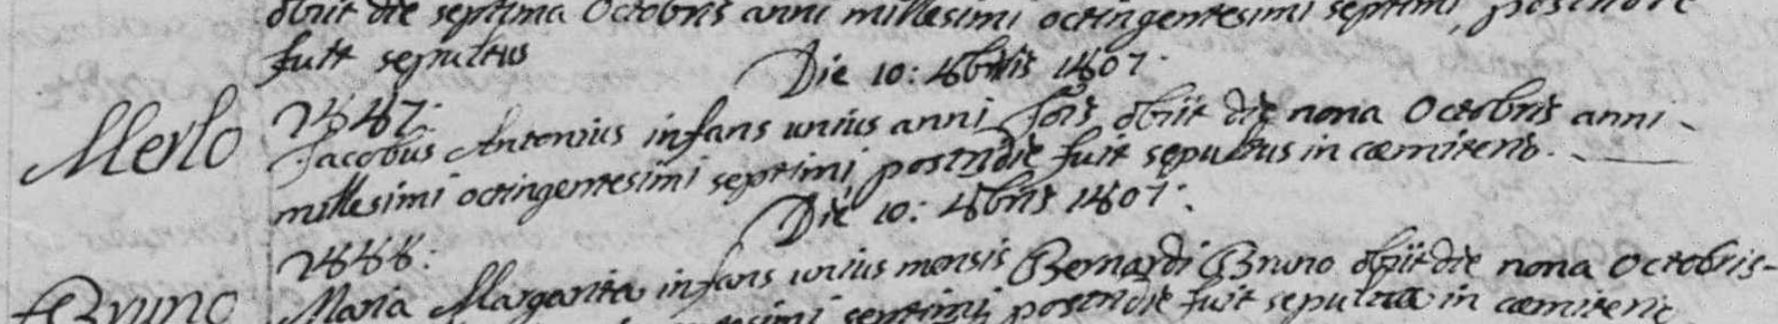 obiit die septima Octobris anni millesimi octingentesimi septimi, postridie
fuit sepultus
Die 10: 8bris 1807.
Merlo 2887:
Jacobus Antonius infans unius anni obiit die nona Octobris anni
millesimi octingentesimi septimi, postridie fuit sepultus in cœmiterio.
Die 10: 8bris 1807:
2888:
Bruno Maria Margarita infans unius mensis Bernardi Bruno obiit die nona Octobris
septimi postridie fuit sepulta in cœmiterio